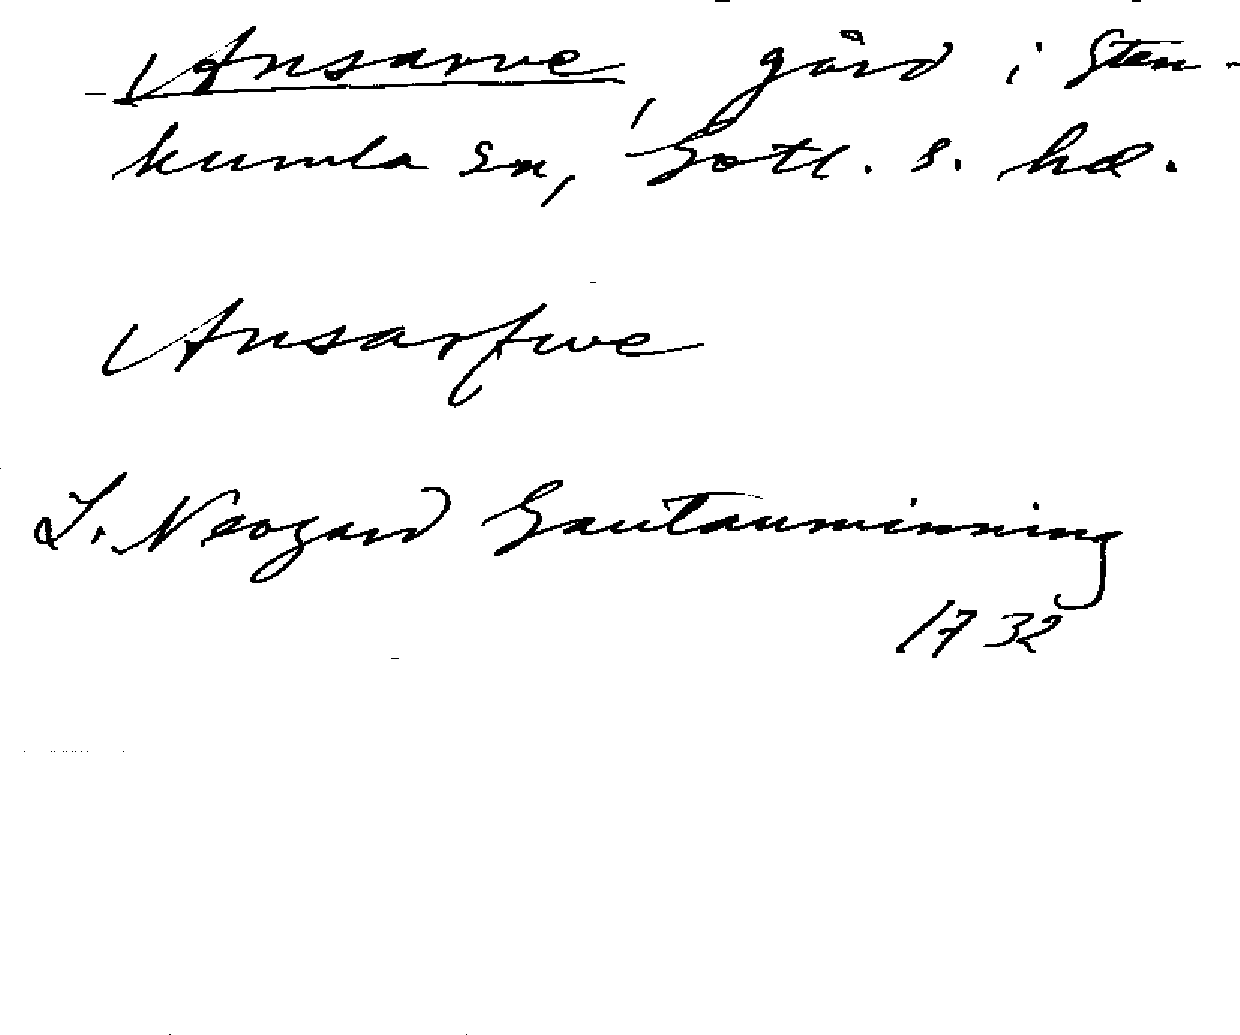 Ansarve, gård i Sten-
kumla sn, Gotl. s. hd.
Ansarfwe
J. Neogard Gautauminning
1732